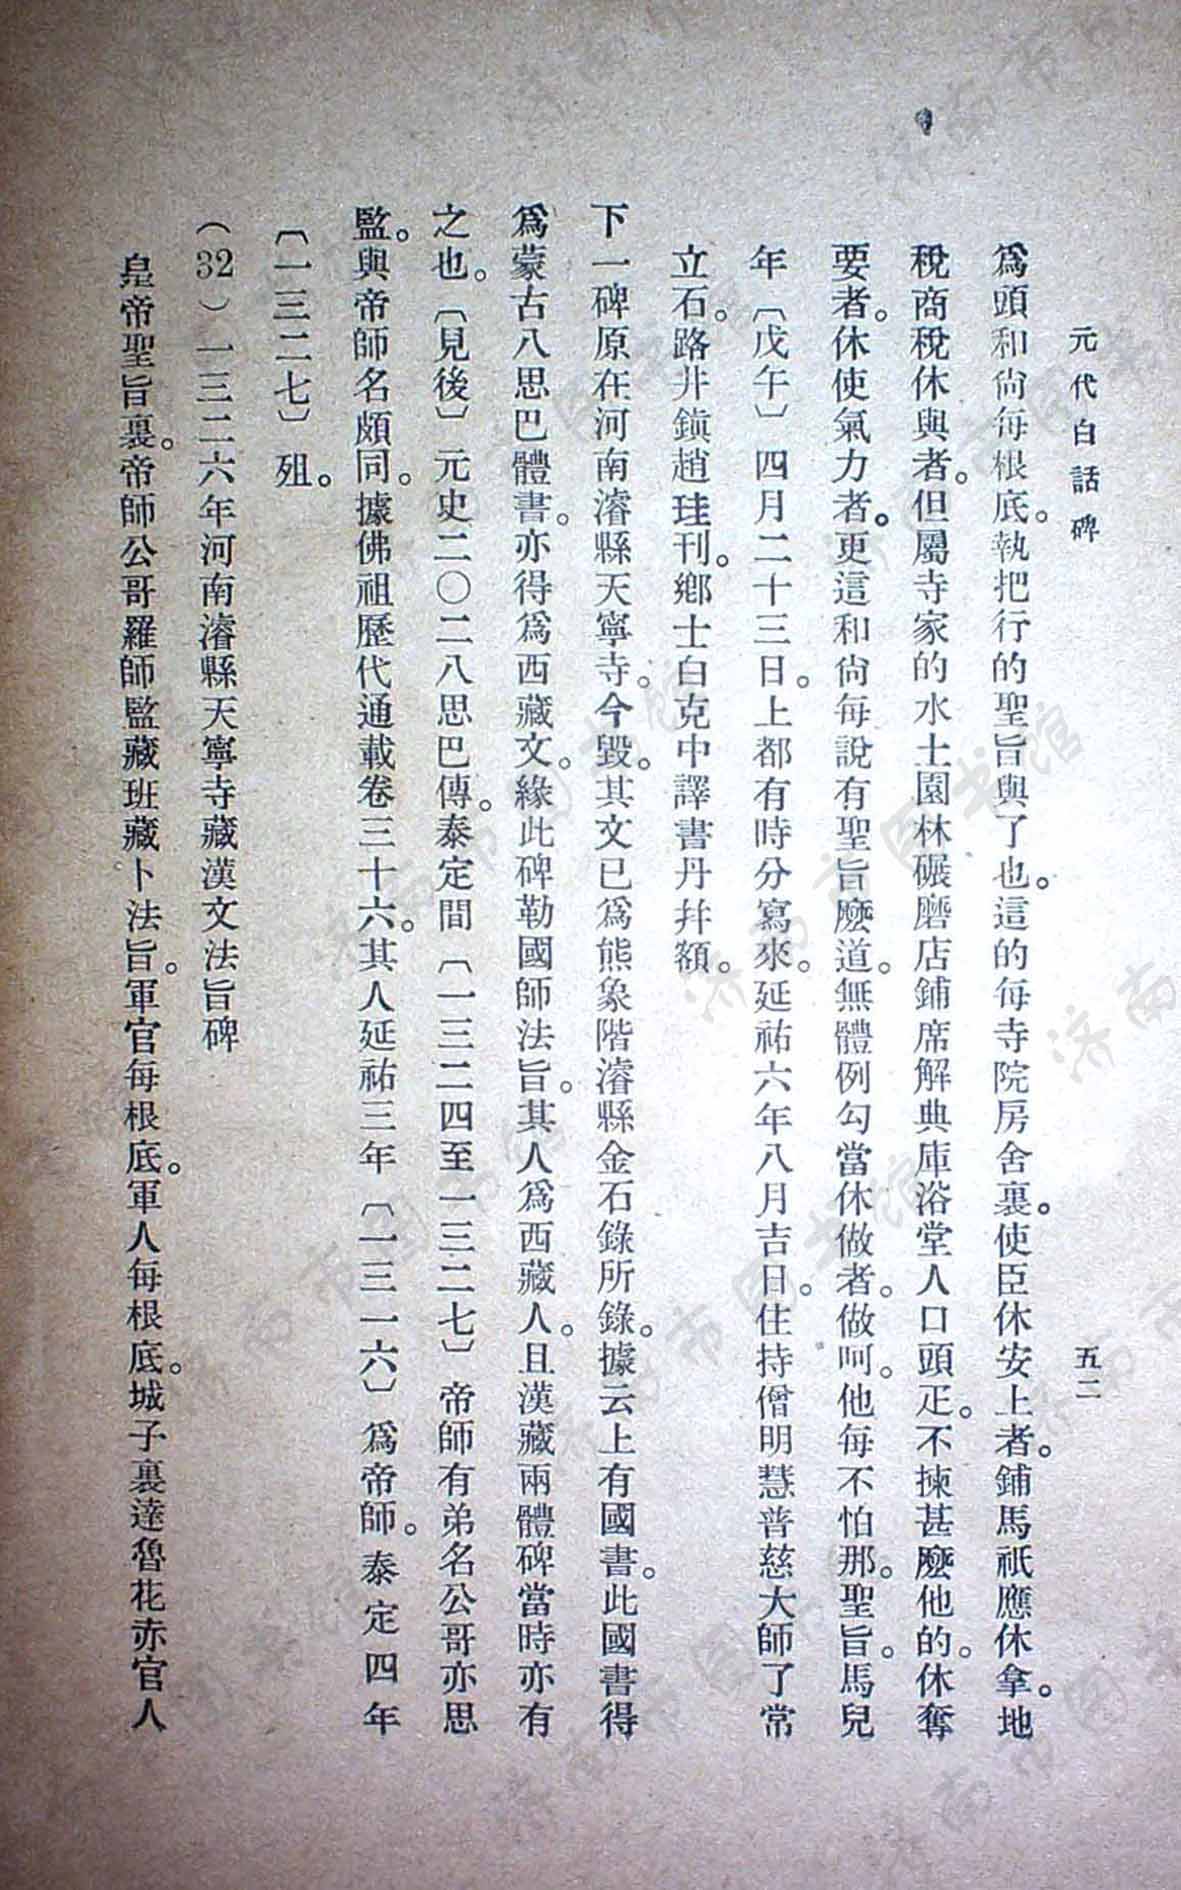 元代白話碑
五二
爲頭和尙每根底。執把行的聖旨與了也。這的每寺院房舍裏。使臣休安上者。鋪馬祇應休拿。地
稅商稅休與者。但屬寺家的水土園林碾磨店鋪席解典庫浴堂人口頭疋。不揀甚麽他的。休奪
要者。休使氣力者。更這和尙每說有聖旨麽道。無體例勾當休做者。做呵。他每不怕那。聖旨。馬兒
年〔戊午〕四月二十三日。上都有時分寫來。延祐六年八月吉日。住持僧明慧普慈大師了常
立石。路井鎭趙珪刊。鄕士白克中譯書丹幷額。
下一碑原在河南濬縣天寧寺。今毀。其文已爲熊象階濬縣金石錄所錄。據云上有國書。此國書得
爲蒙古八思巴體書。亦得爲西藏文。緣此碑勒國師法旨。其人爲西藏人。且漢藏兩體碑當時亦有
之也。〔見後〕元史二〇二八思巴傳。泰定間〔一三二四至一三二七〕帝師有弟名公哥亦思
監。與帝師名頗同。據佛祖歷代通載卷三十六。其人延祐三年〔一三一六〕爲帝師。泰定四年
〔一三二七〕殂。
（32）一三二六年河南濬縣天寧寺藏漢文法旨碑
皇帝聖旨裏。帝師公哥羅師監藏班藏卜法旨。軍官每根底。軍人每根底。城子裏達魯花赤官人
济南市图书馆